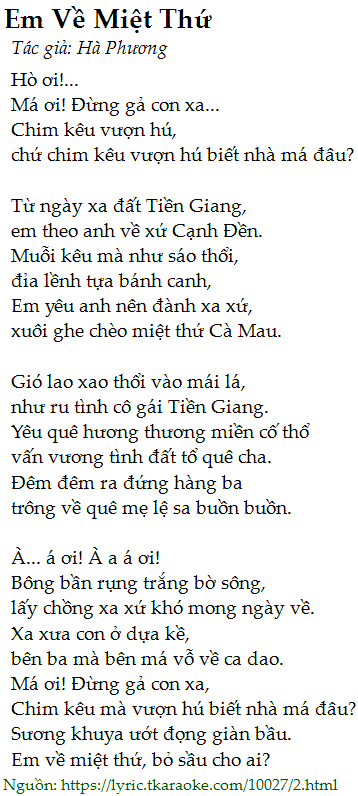 Em Về Miệt Thứ
Tác giả: Hà Phương
Hò ơi!...
Má ơi! Đừng gả con xa...
Chim kêu vượn hú,
chứ chim kêu vượn hú biết nhà má đâu?
Từ ngày xa đất Tiền Giang,
em theo anh về xứ Cạnh Đền.
Muỗi kêu mà như sáo thổi,
đỉa lềnh tựa bánh canh,
Em yêu anh nên đành xa xứ,
xuôi ghe chèo miệt thứ Cà Mau.
Gió lao xao thổi vào mái lá,
như ru tình cô gái Tiền Giang.
Yêu quê hương thương miền cố thổ
vấn vương tình đất tổ quê cha.
Đêm đêm ra đứng hàng ba
trông về quê mẹ lệ sa buồn buồn.
À... á ơi! À a á ơi!
Bông bần rụng trắng bờ sông,
lấy chồng xa xứ khó mong ngày về.
Xa xưa con ở dựa kề,
bên ba mà bên má vỗ về ca dao.
Má ơi! Đừng gả con xa,
Chim kêu mà vượn hú biết nhà má đâu?
Sương khuya ướt đọng giàn bầu.
Em về miệt thứ, bỏ sầu cho ai?
Nguồn: https://lyric.tkaraoke.com/10027/2.html